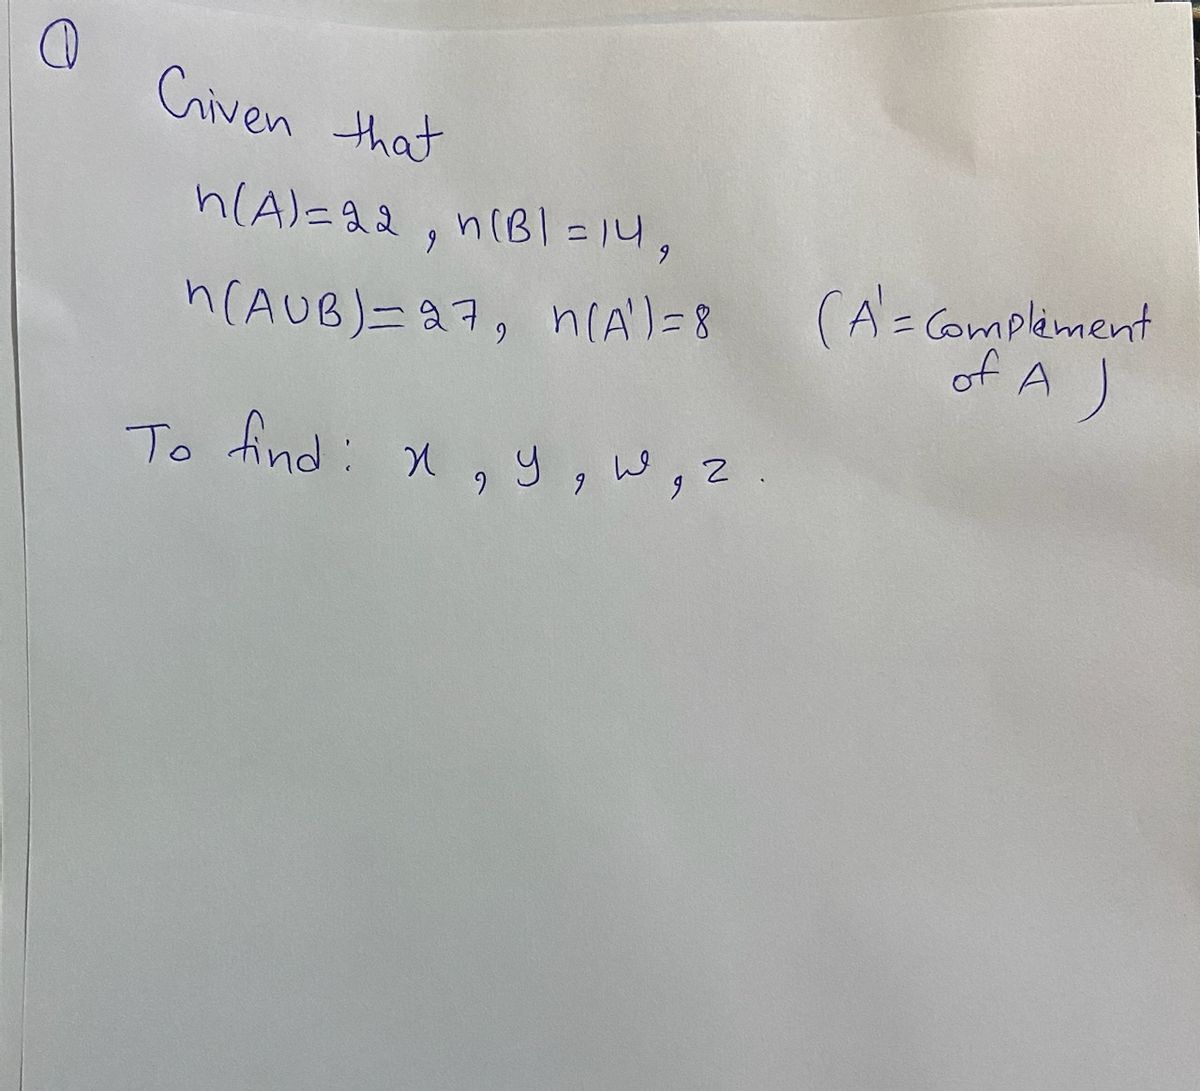 ①
Given that
n(A)=22, n(B)=14,
n(A∪B)=27, n(A')=8 (A'=Compliment
of A)
To find: x, y, w, z.